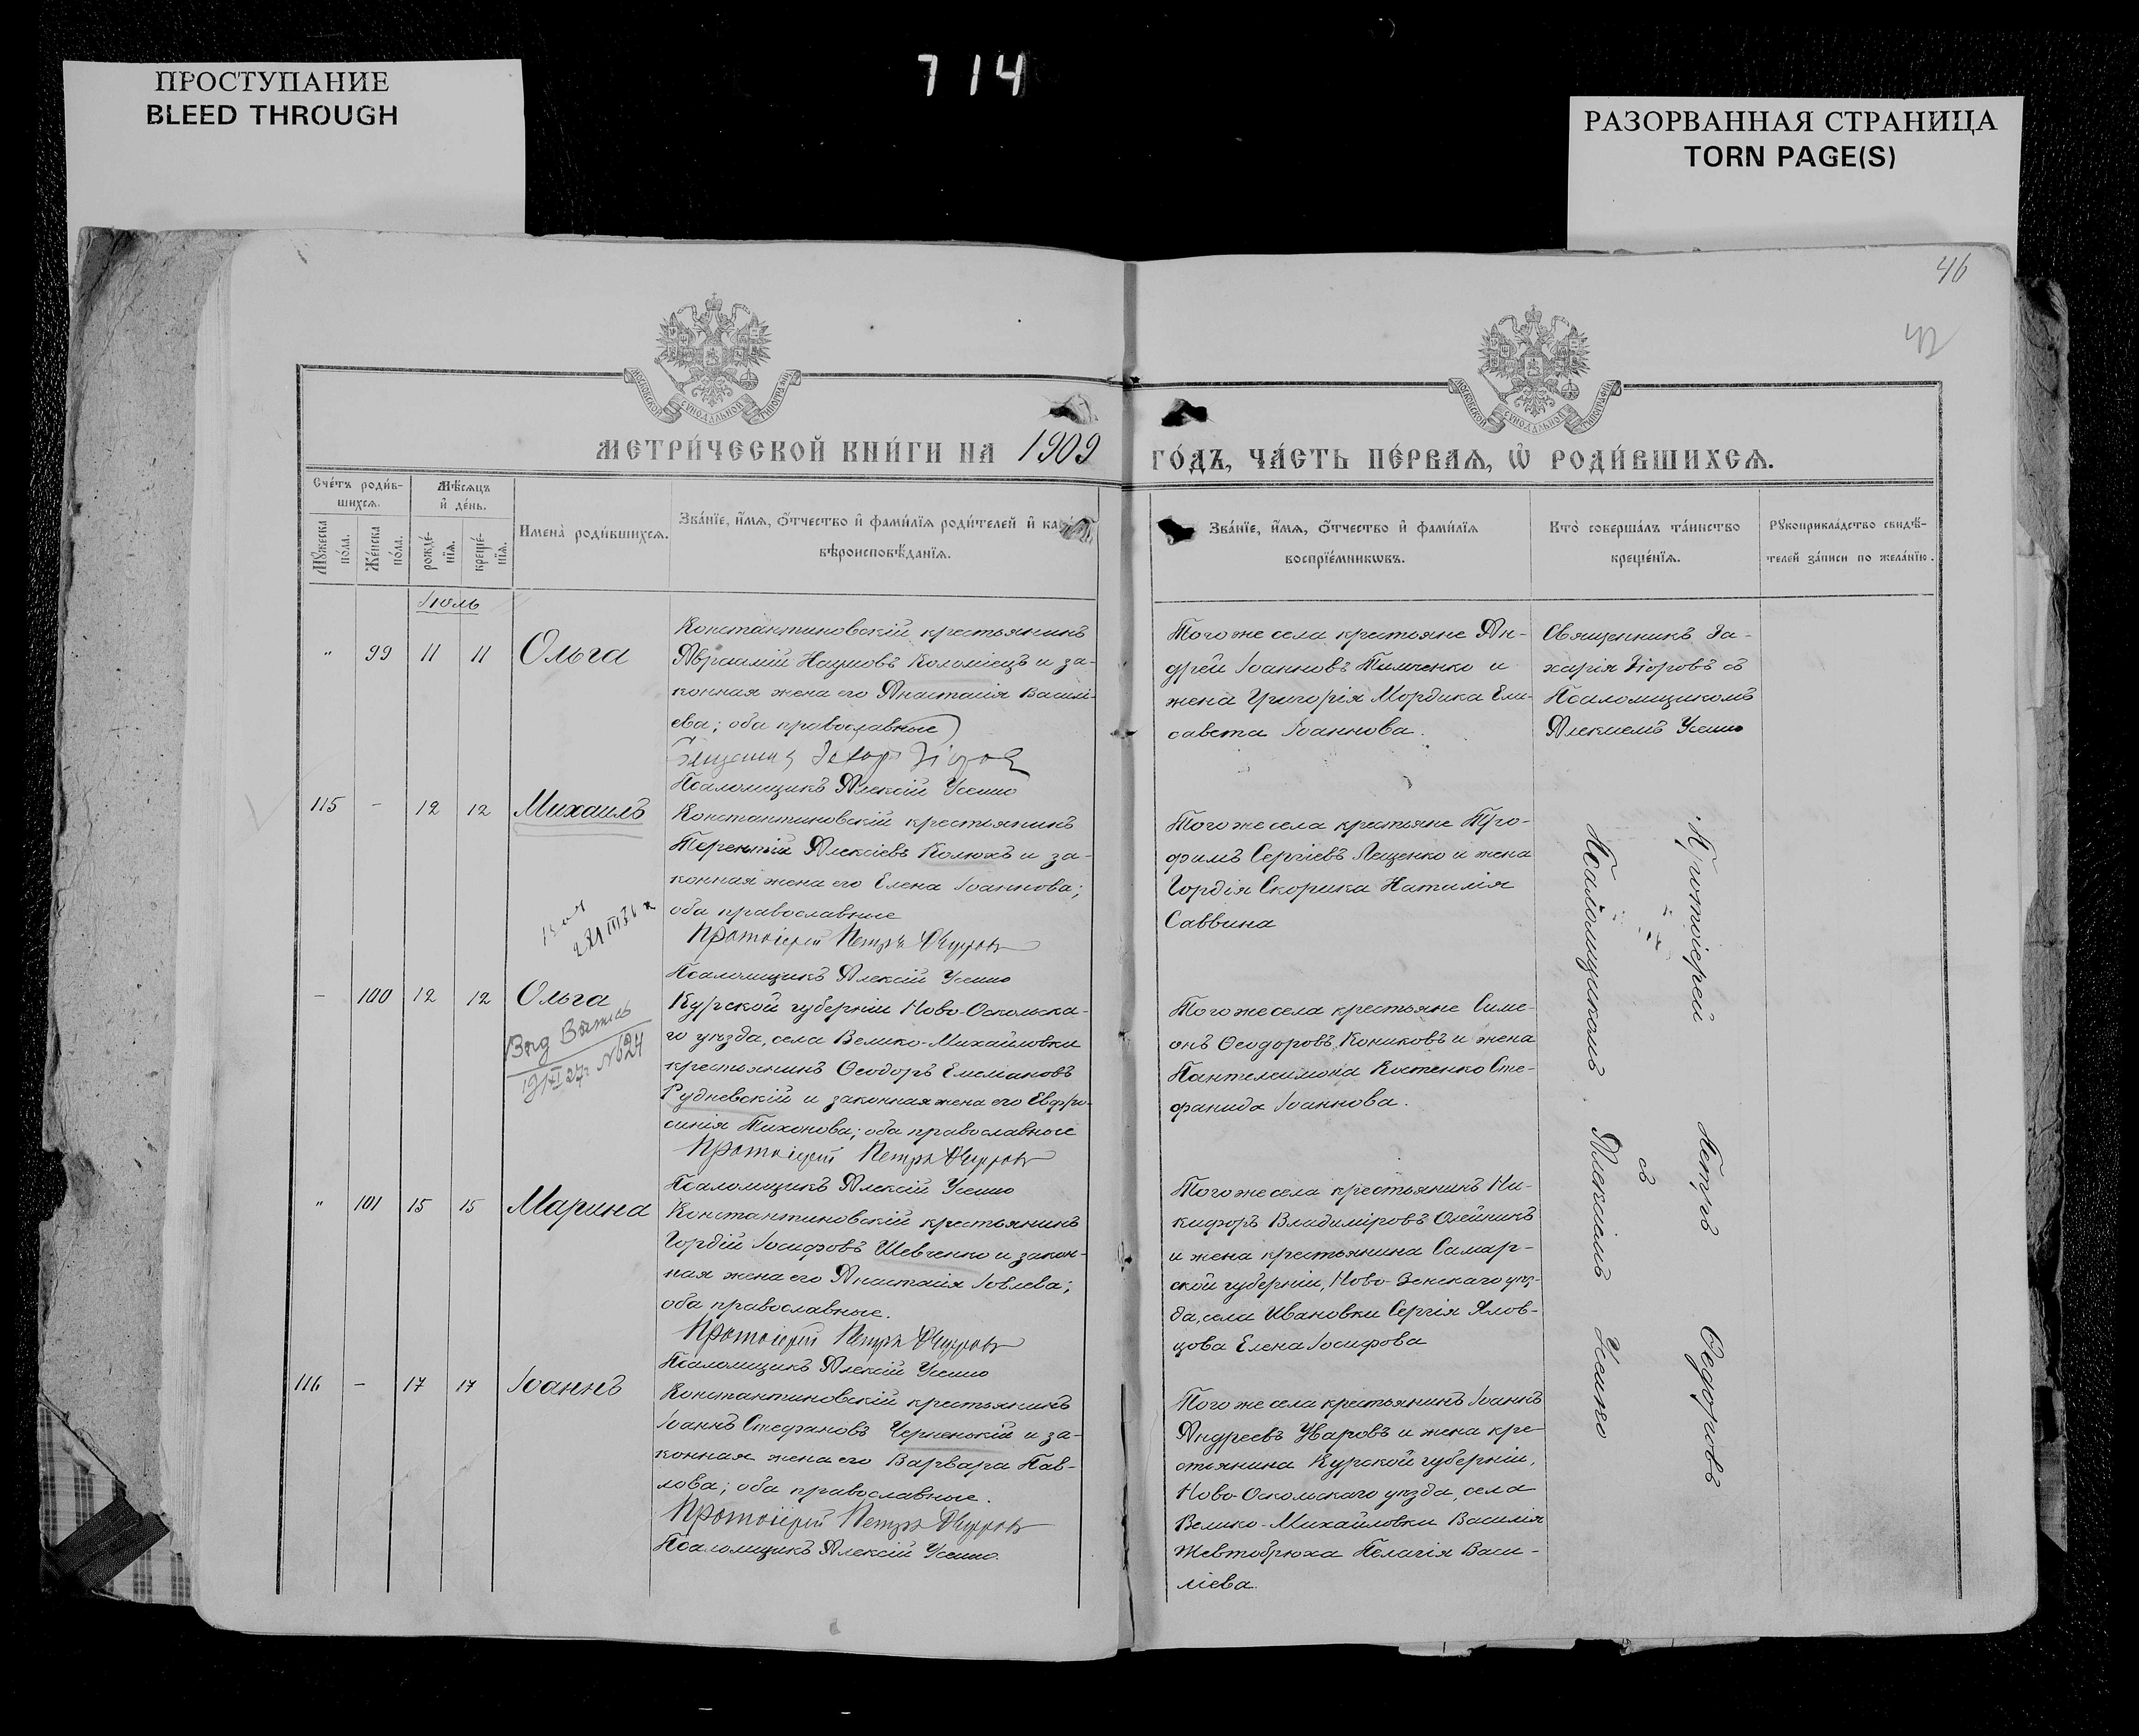 714
ПРОСТУПАНИЕ
BLEED THROUGH
РАЗОРВАННАЯ СТРАНИЦА
TORN PAGE(S)
46
42
МОСКОВСКОЙ СѴНОДАЛЬНОЙ ТИПОГРАФІИ
МОСКОВСКОЙ СѴНОДАЛЬНОЙ ТИПОГРАФІИ
МЕТРИ́ЧЕСКОЙ КНИ́ГИ НА 1909
ГО́ДЪ, ЧА́СТЬ ПЕ́РВАѦ, Ѽ РОДИ́ВШИХСѦ.
Сче́тъ роди́в-
шихсѧ.
Мꙋ́жеска
по́ла.
Же́нска
по́ла.
Мѣ́сѧцъ
и҆ де́нь.
рожде́-
нїѧ.
креще́-
нїѧ.
Имена̀ роди́вшихсѧ.
Зва́нїе, и҆́мѧ, ѻ҆́тчество и҆ фами́лїѧ роди́телей и҆
вѣроисповѣ́данїѧ.
Зва́нїе, и҆́мѧ, ѻ҆́тчество и҆ фами́лїѧ
воспрїе́мникѡвъ.
Кто̀ соверша́лъ та́инство
креще́нїѧ.
Рꙋкоприкла́дство свидѣ́-
телей за́писи по жела́нїю.
Іюль
" 99 11 11 Ольга
Константиновскій крестьянинъ
Авраамій Наумовъ Коломіецъ и за-
конная жена его Анастасія Васили-
ева; оба православные
Псаломщикъ Алексій Усенко
Того же села крестьяне Ан-
дрей Іоанновъ Тимченко и
жена Григорія Мордика Ели-
савета Іоаннова.
Священникъ За-
харія Зіоровъ съ
Псаломщикомъ
Алексіемъ Усенко
115 - 12 12 Михаилъ
Константиновскій крестьянинъ
Терентій Алексіевъ Колюхъ и за-
конная жена его Елена Іоаннова;
оба православные
Протоіерей Петръ Ѳедоровъ
Псаломщикъ Алексій Усенко
Того же села крестьяне Тро-
фимъ Сергіевъ Лещенко и жена
Гордія Скорика Наталія
Саввина
- 100 12 12 Ольга
Вид Витяг
Курской губерніи Ново-Оскольска-
го уѣзда, села Велико-Михайловки
крестьянинъ Ѳеодоръ Емеліановъ
Рудневскій и законная жена его Евфро-
синія Тихонова; оба православные
Протоіерей Петръ Ѳедоровъ
Псаломщикъ Алексій Усенко
Того же села крестьяне Симе-
онъ Ѳеодоровъ Кониковъ и жена
Пантелеимона Костенко Сте-
фанида Іоаннова.
" 101 15 15 Марина
Константиновскій крестьянинъ
Гордій Іосифовъ Шевченко и закон-
ная жена его Анастасія Іовлева;
оба православные.
Протоіерей Петръ Ѳедоровъ
Псаломщикъ Алексій Усенко
Того же села крестьянинъ Ни-
кифоръ Владиміровъ Олейникъ
и жена крестьянина Самар-
ской губерніи, Ново-Узенскаго уѣз-
да, села Ивановки Сергія Ялов-
цова Елена Іосифова
116 - 17 17 Іоаннъ
Константиновскій крестьянинъ
Іоаннъ Стефановъ Черненькій и за-
конная жена его Варвара Пав-
лова; оба православные.
Протоіерей Петръ Ѳедоровъ
Псаломщикъ Алексій Усенко.
Того же села крестьянинъ Іоаннъ
Андреевъ Уваровъ и жена кре-
стьянина Курской губерніи,
Ново-Оскольскаго уѣзда, села
Велико-Михайловки Василія
Жевтобрюха Пелагія Васи-
ліева.
Протоіерей Петръ Ѳедоровъ
съ
Псаломщикомъ Алексіемъ Усенко